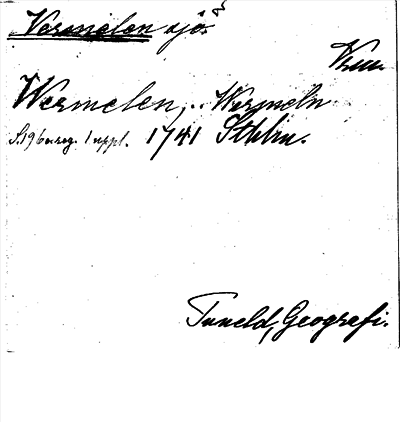 Vermelen sjö.
Vrm.
Wermelen, .. Wermeln
S. 196 o. reg. 1 uppl. 1741 Sthlm.
Tuneld, Geografi.